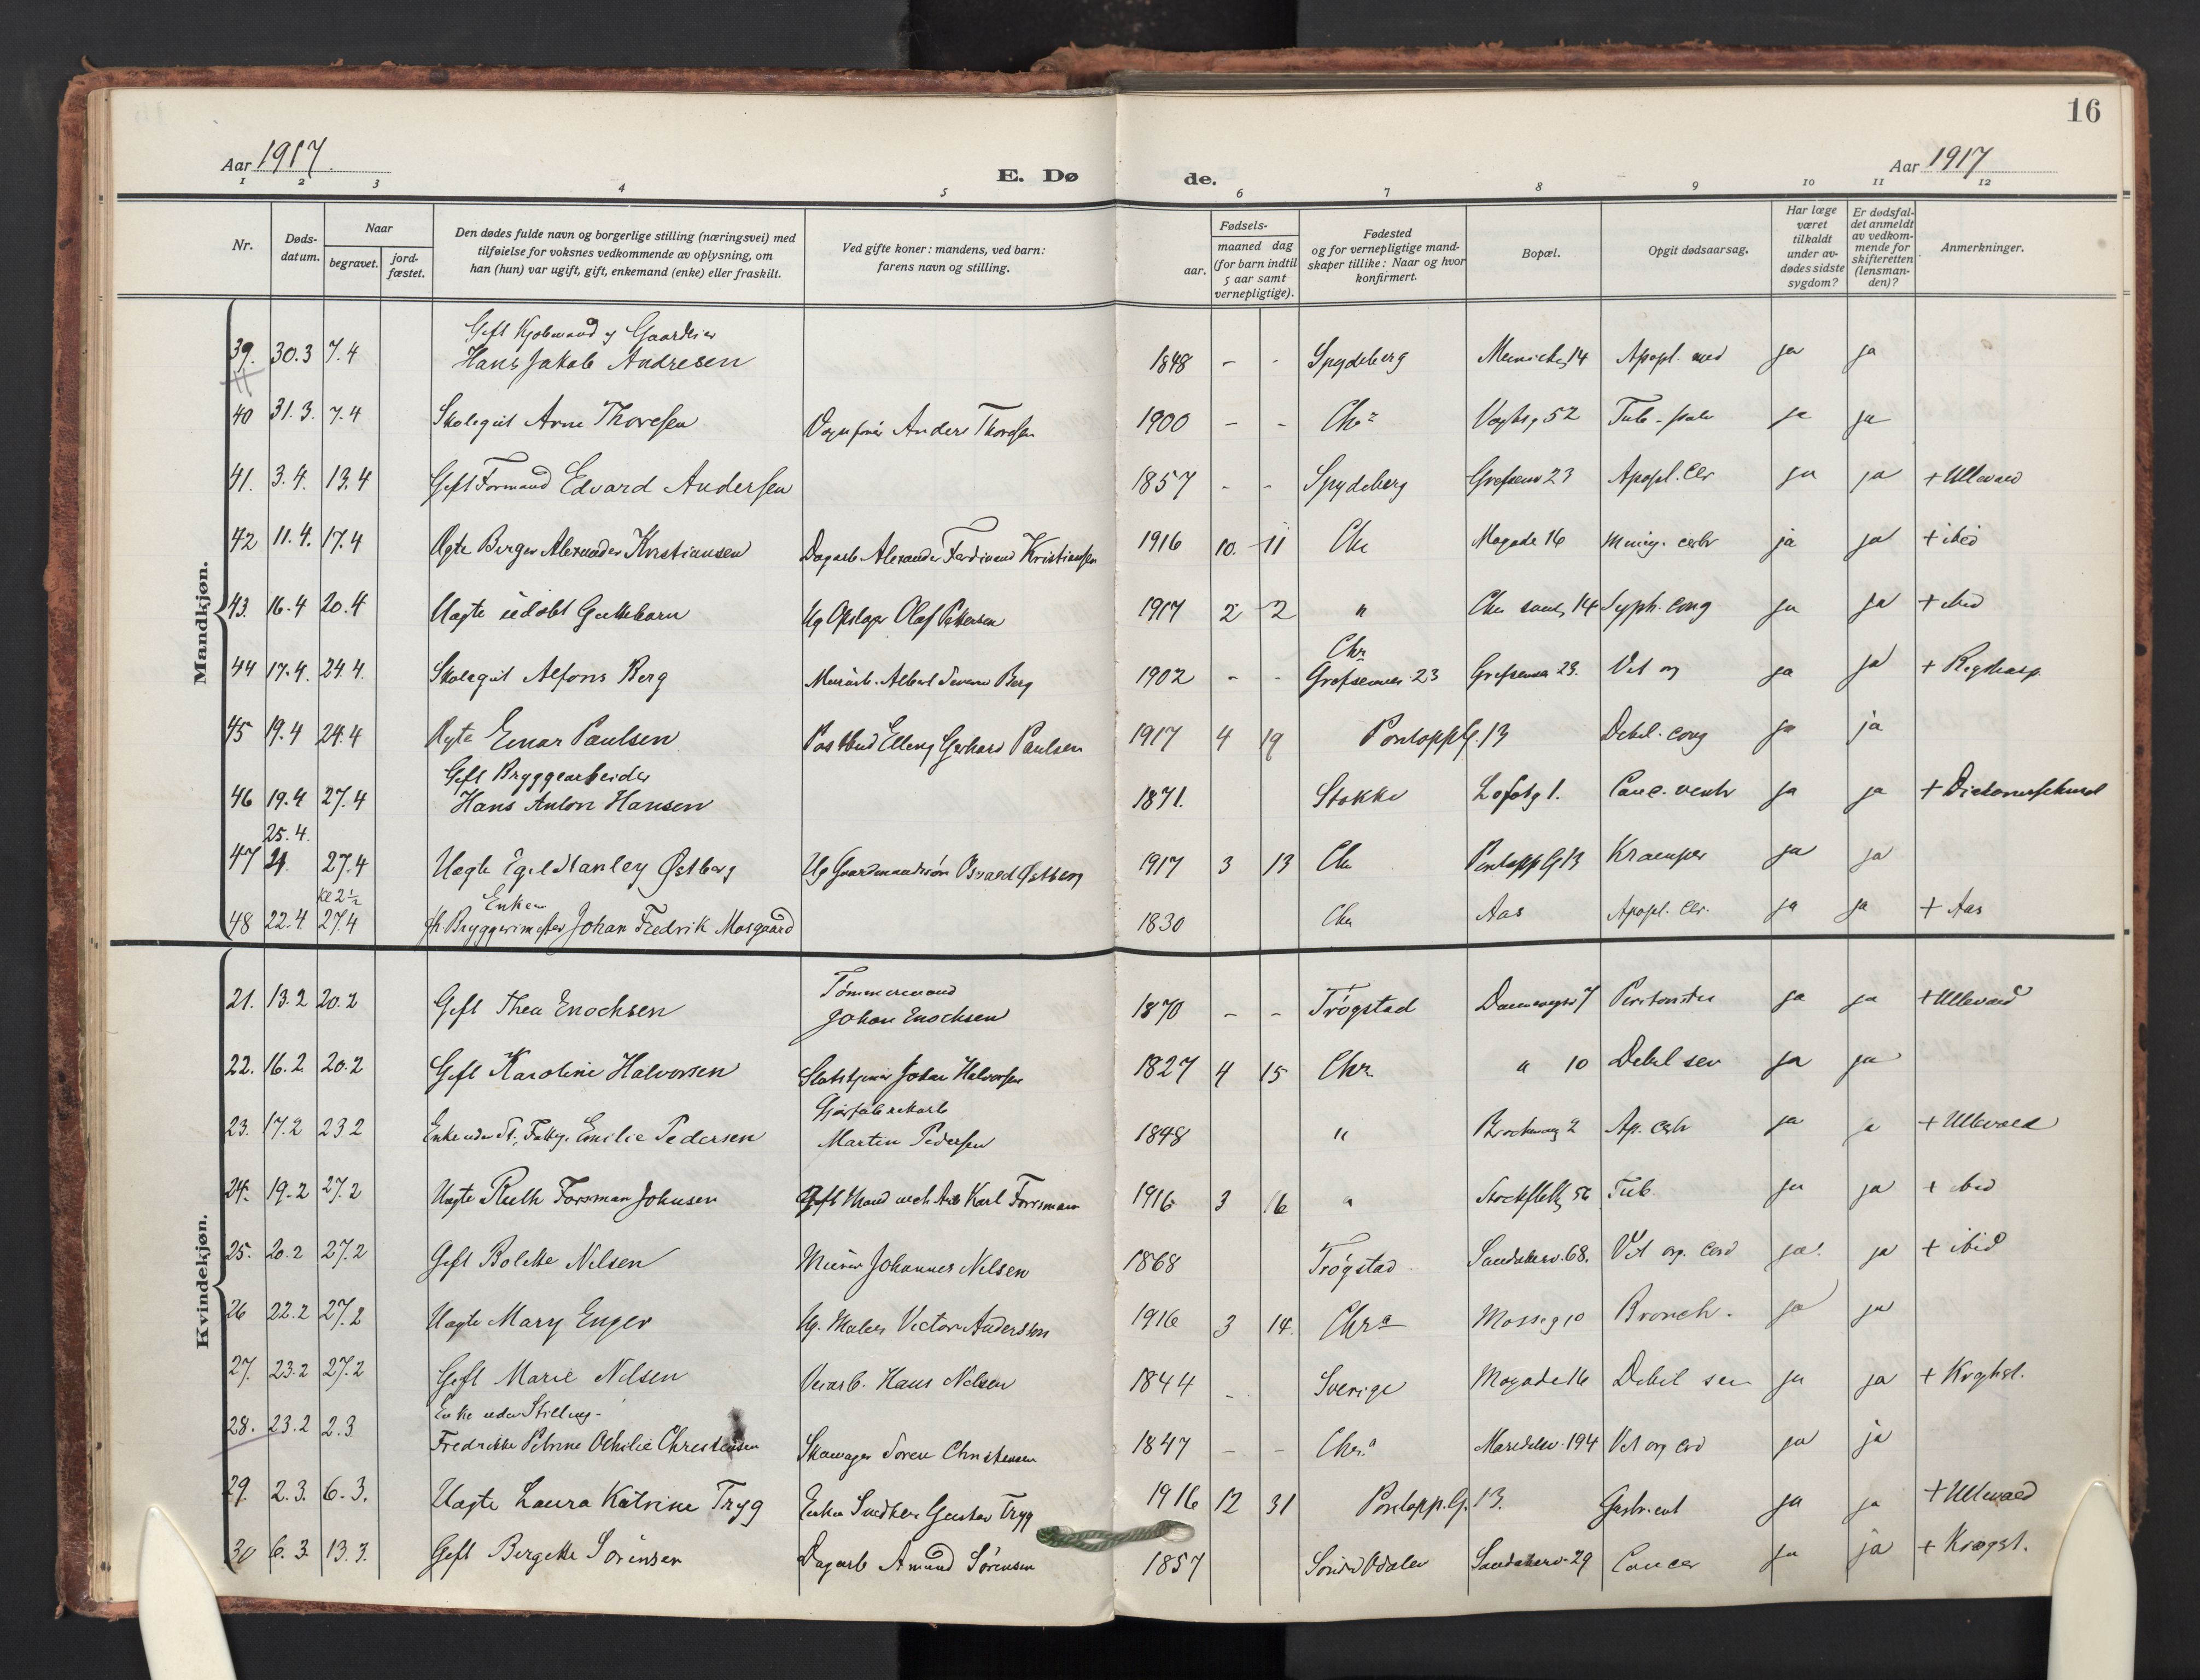 16
Aar 1917.
E. Døde.
Aar 1917
1 2 3 4 5 6 7 8 9 10 11 12
Nr.
Døds-datum.
Naar
begravet.
jord-fæstet.
Den dødes fulde navn og borgerlige stilling (næringsvei) med
tilføielse for voksnes vedkommende av oplysning, om
han (hun) var ugift, gift, enkemand (enke) eller fraskilt.
Ved gifte koner: mandens, ved barn:
farens navn og stilling.
Fødsels-
aar.
maaned dag
(for barn indtil
5 aar samt
vernepligtige).
Fødested
og for vernepligtige mand-
skaper tillike: Naar og hvor
konfirmert.
Bopæl.
Opgit dødsaarsag.
Har læge
været
tilkaldt
under av-
dødes sidste
sygdom?
Er dødsfal-
det anmeldt
av vedkom-
mende for
skifteretten
(lensman-
den)?
Anmerkninger.
Mandkjøn.
Gift Kjøbmand og Gaardeier
39. 30.3 7.4 Hans Jakob Andresen 1848 - - Spydeberg 14 Apopl. ja ja
40 31.3. 7.4 Skolegut Arne Thoresen Anders Thoresen 1900 - - Chra 52 Tub. ja ja
41. 3.4. 13.4 Gift Formand Edvard Andersen 1857 - - Spydeberg Grefsenv 23 Apopl. cer ja ja + Ullevaal
42 11.4. 17.4 Ægte Birger Alexander Kristiansen Dagarb. Alexander Ferdinand Kristiansen 1916 10. 11 Chr Mogade 16 Mening. cerbr ja ja + ibid
43. 16.4 20.4 Uægte udøbt Guttebarn Ug Olaf Pettersen 1917 2 2 " 14 Syph. cong ja ja + ibid
Chr
44 17.4. 24.4. Skolegut Alfons Berg Murarb. Albert Berg 1902 - - Grefsenveien 23 Grefsenvei 23. Vit org ja ja + Rigshosp.
45 19.4 24.4 Ægte Einar Paulsen Postbud Elling Gerhard Paulsen 1917 4 19 Pontoppg. 13 Debil. cong ja ja
Gift Bryggearbeider
46 19.4 27.4 Hans Anton Hansen 1871. Stokke Lofotg 1. Canc. ventr ja ja
25.4.
47 21 27.4 Uægte Egil Stanley Østberg Ug Gaardmandssøn Osvald Østberg 1917 3 13 Chr Pontopp G 13 Kramper ja ja
kl 2 1/2
Enkem
48 22.4 27.4 fh. Bryggerimester Johan Fredrik Mosgaard 1830 Chr Aas Apopl. cer. ja ja + Aas
Kvindekjøn.
Tømmermand
21. 13.2 20.2 Gift Thea Enochsen Johan Enochsen 1870 - - Trøgstad 7 ja ja + Ullevaal
22. 16.2 20.2 Gift Karoline Halvorsen Johan Halvorsen 1827 4 15 Chr " 10 Debil sen ja ja
23. 17.2 23.2 Enke uden St., Fattig. Emilie Pedersen Martin Pedersen 1848 " 2 Ap. cerbr ja ja + Ullevaal
24. 19.2 27.2 Uægte Ruth Forsman Johnsen Gift Mand Karl Forsman 1916 3 16 " 56 Tub. ja ja + ibid
25. 20.2 27.2 Gift Bolette Nilsen Murer Johannes Nilsen 1868 Trøgstad Sandakerv. 68. Vit org. cord ja. ja + ibid
26 22.2 27.2 Uægte Mary Enger Ug. Maler Victor Andersson 1916 3 14. Chra Mosseg 10 Bronch. ja ja
27. 23.2 27.2 Gift Marie Nilsen Hans Nilsen 1844 - Sverige Mogade 16 Debil sen ja ja + Krghst.
Enke uden Stilling
28. 23.2 2.3 Fredrikke Petrine Othilie Christensen Skomager Soren Christensen 1847 - - Chr.a Maridalsv. 194 Vit org cord ja ja
29. 2.3. 6.3. Uægte Laura Katrine Tryg Snedker Gustav Tryg 1916 12 31 Pontopp. G. 13. Gastr. ent ja ja + Ullevaal
30 6.3. 13.3. Gift Bergette Sørensen Dagarb Amund Sørensen 1857 Søndre Odalen Sandakerv. 29 Cancer ja ja + Krogst.